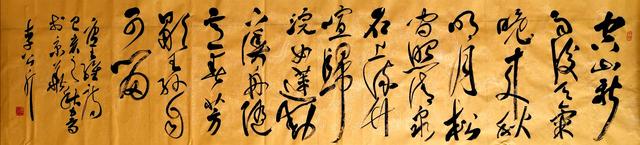 空山新
雨後天氣
晚来秋
明月松
间照清泉
石上流竹
喧歸
浣女蓮動
下漁舟隨
意春芳
歇王孫自
可留
唐王維詩
於京華
李公